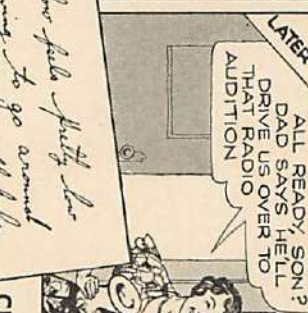 LATER
ALL READY, SON?
DAD SAYS HE'LL
DRIVE US OVER TO
THAT RADIO
AUDITION
feels pretty low
to go around